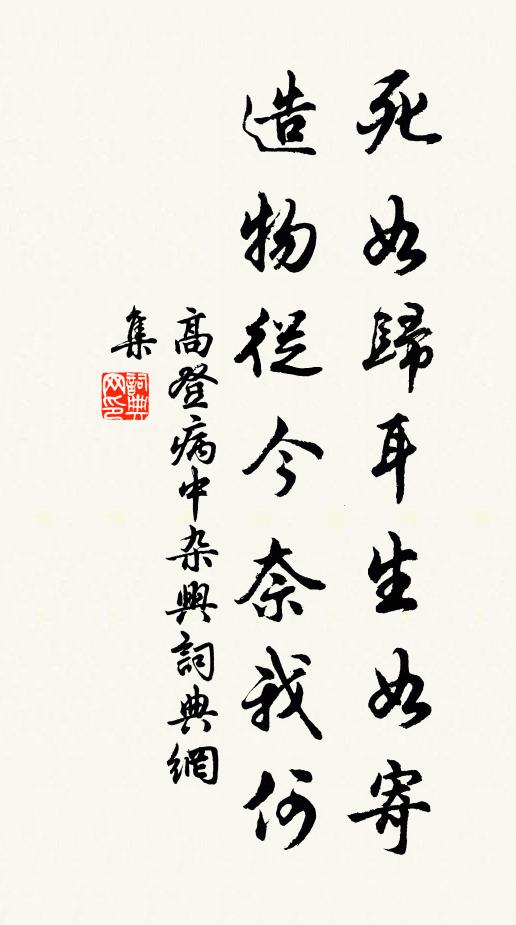 死如歸耳生如寄
造物從今奈我何
高登病中杂興詞典網
集
詞典
网印